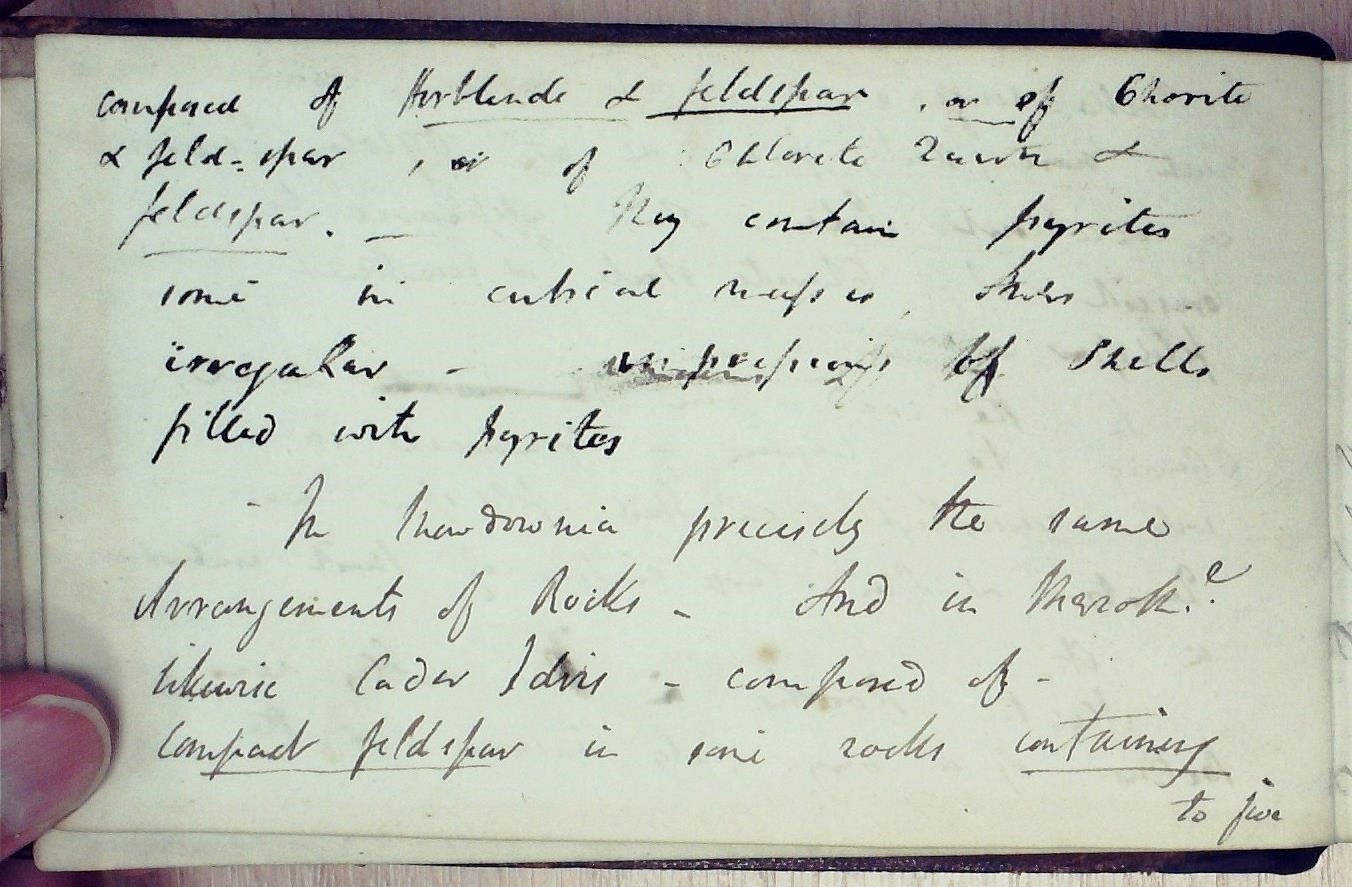 composed of Horblende & feldspar, or of Chorite
& feld-spar, or of Chlorite Quartz &
feldspar. — They contain pyrites
some in cubical masses, others
irregular - impressions of Shells
filled with pyrites
- In Snowdownia precisely the same
Arrangements of Rocks - And in
likewise Cadar Idris - composed of -
compact feldspar in some rocks containing
to five